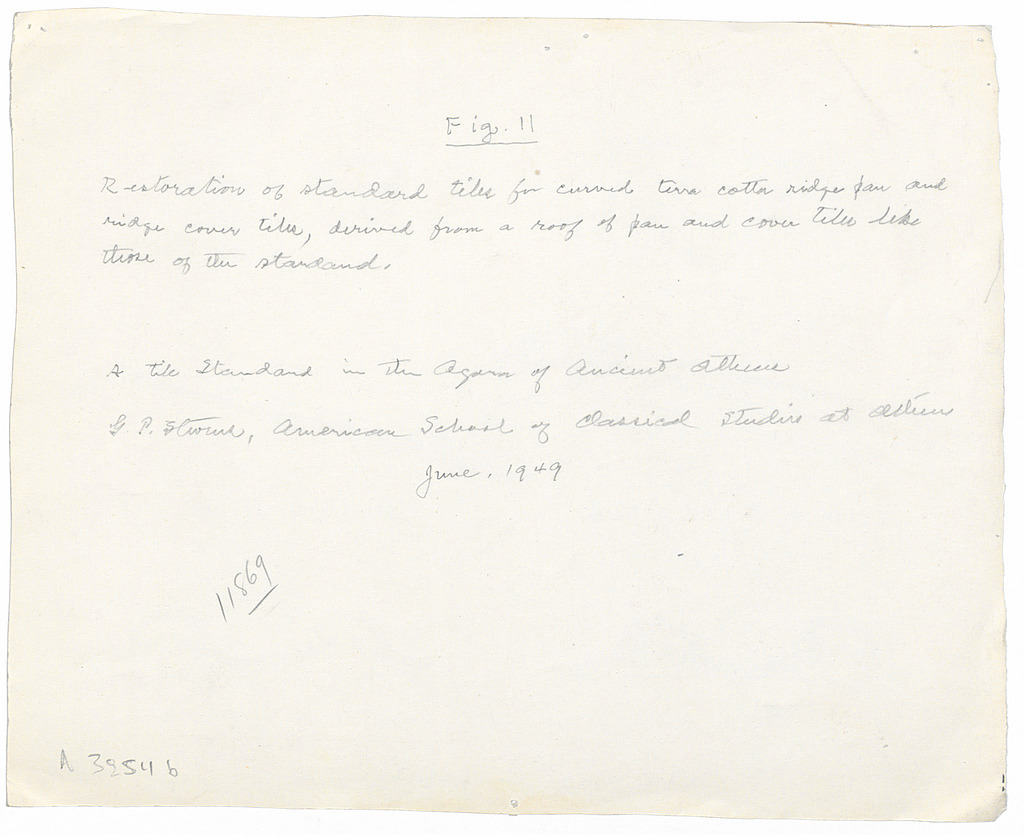 Fig. 11
Restoration of standard tiles for curved terra cotta ridge pan and
ridge cover tiles, derived from a roof of pan and cover tiles like
those of the standard.
A tile Standard in the Agora of Ancient Athens
G. P. Stevens, American School of Classical Studies at Athens
June. 1949
11869
A 3254 b